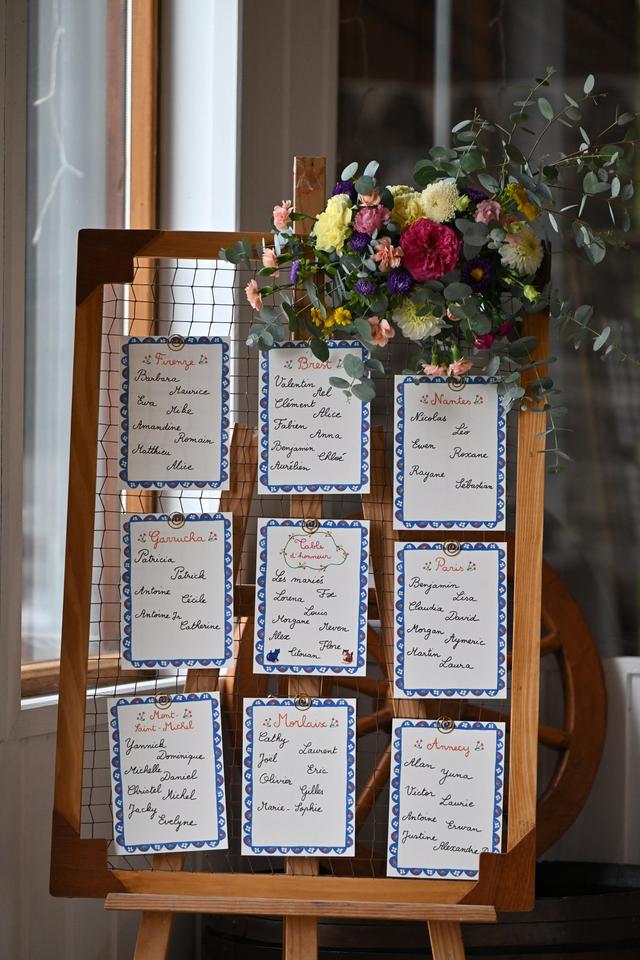 Firenze
Barbara
Maurice
Eva
Mike
Amandine
Romain
Matthieu
Alice
Brest
Valentin
Ael
Clément
Alice
Fabien
Anna
Benjamin
Chloé
Aurélien
Nantes
Nicolas
Léo
Ewen
Roxane
Rayane
Sébastian
Garrucha
Patricia
Patrick
Antoine
Cécile
Antoine Jr
Catherine
Table
d'honneur
Les mariés
Lorena
Louis
Morgane
Meven
Alex
Flore
Titouan
Paris
Benjamin
Lisa
Claudia
David
Morgan
Aymeric
Martin
Laura
Mont-
Saint-Michel
Yannick
Dominique
Michelle
Daniel
Christel
Michel
Jacky
Evelyne
Morlaix
Cathy
Laurent
Joël
Eric
Olivier
Gilles
Marie-Sophie
Annecy
Alan
Yuna
Victor
Laurie
Antoine
Erwan
Justine
Alexandre